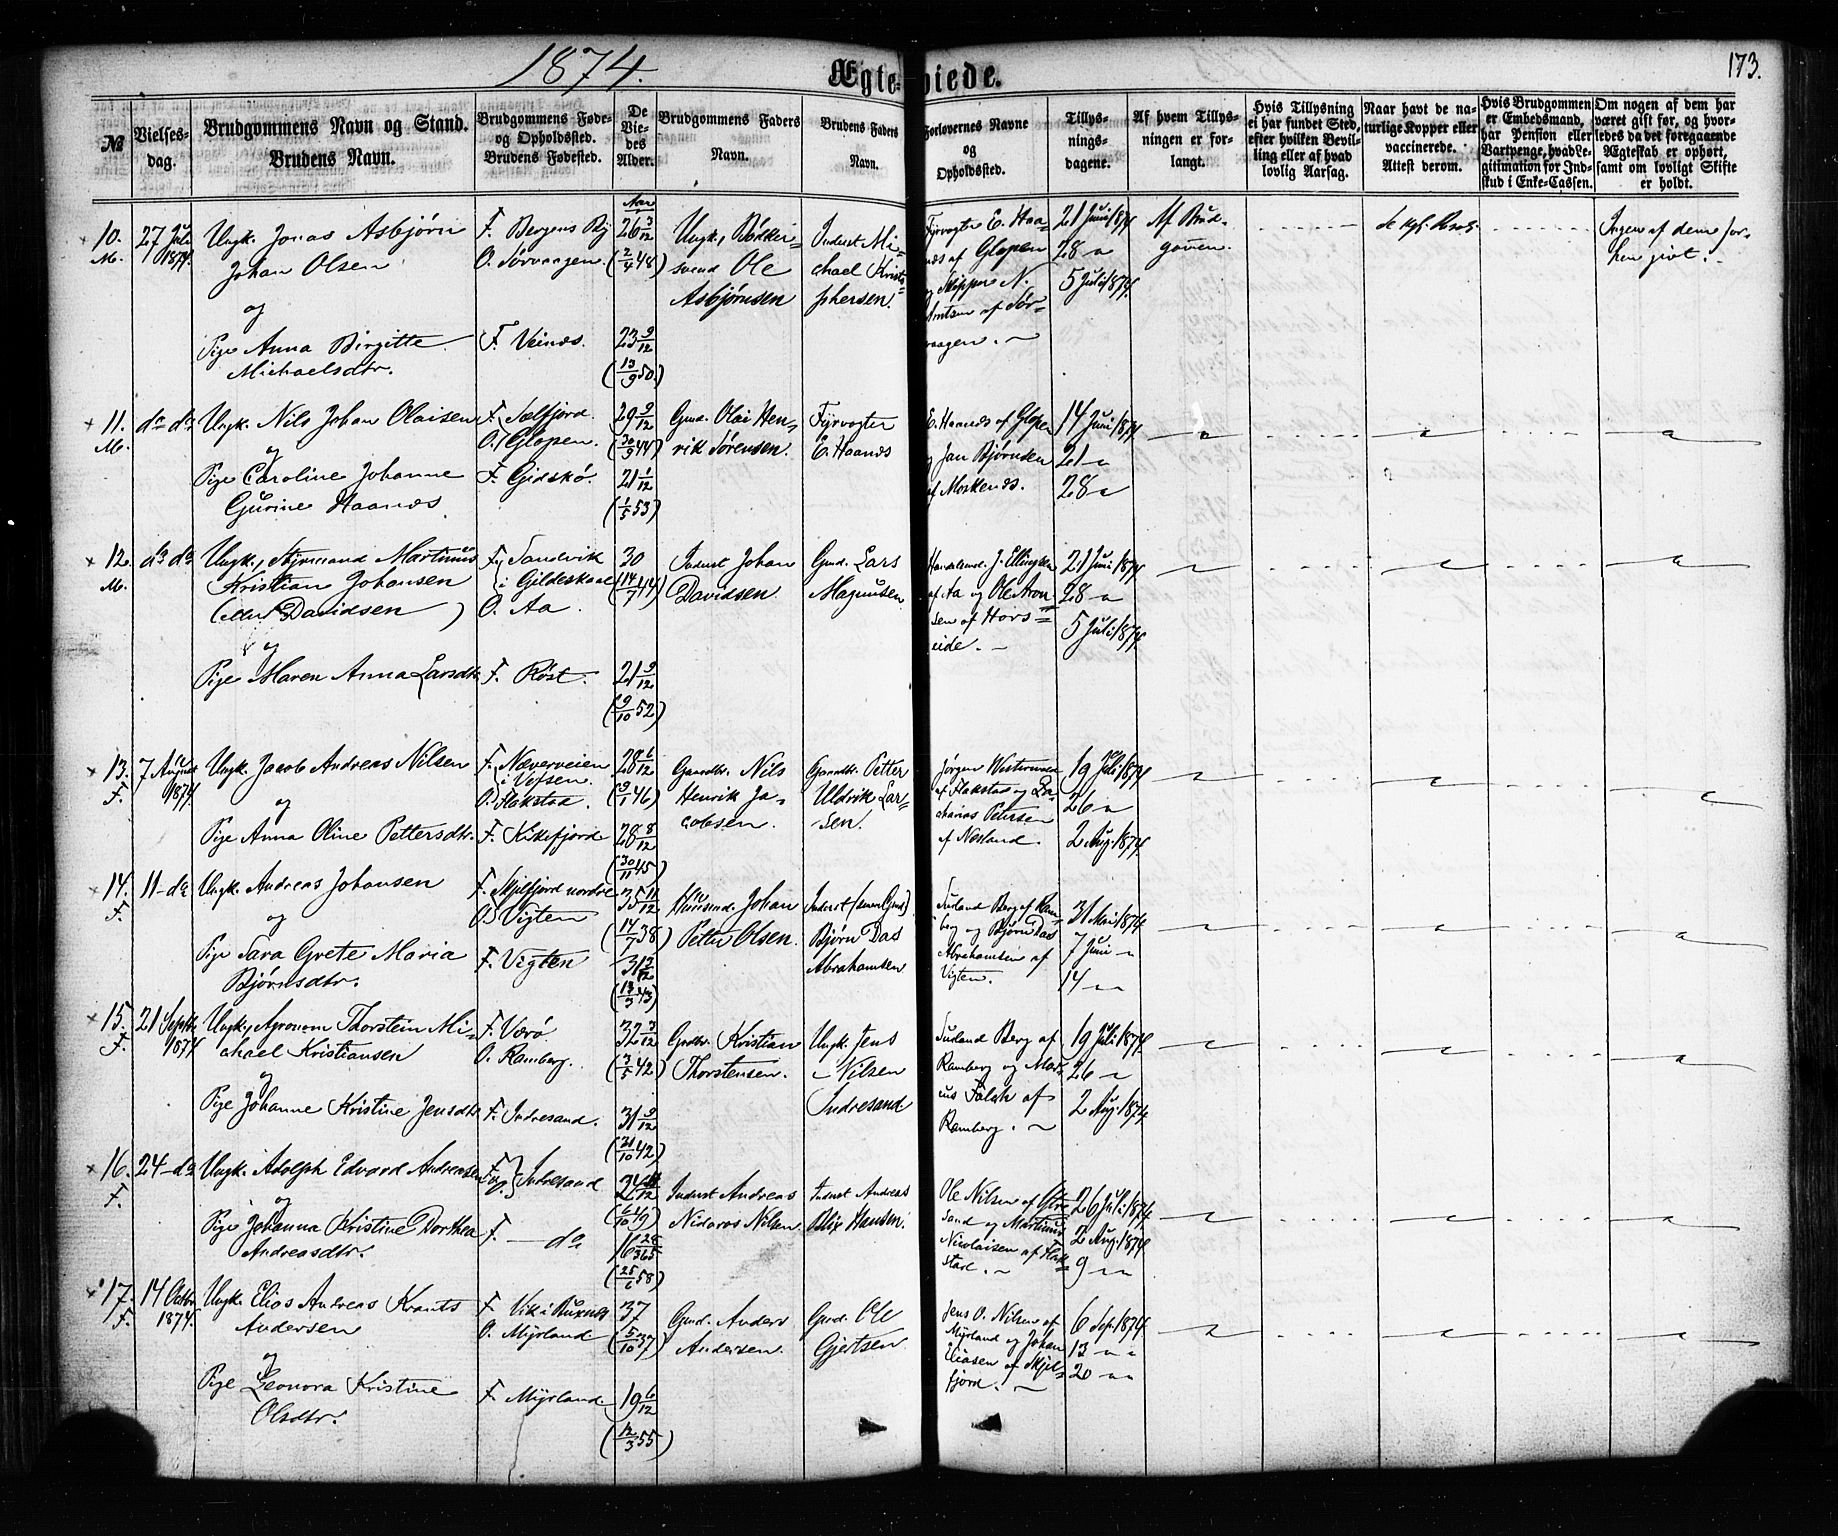 1874.
173.
Ægte-
viede.
№
Vielses-
dag.
Brudgommens Navn og Stand.
Brudens Navn.
Brudgommens Føde-
og Opholdssted.
Brudens Fødested.
De
Vie-
des
Alder.
Brudgommens Faders
Navn.
Brudens Faders
Navn.
Forlovernes Navne
og
Opholdssted.
Tillys-
nings-
dagene.
Af hvem Tillys-
ningen er for-
langt.
Hvis Tillysning
ei har fundet Sted,
efter hvilken Bevil-
ling eller af hvad
lovlig Aarsag.
Naar havt de na-
turlige Kopper eller
vaccinerede.
Attest derom.
Hvis Brudgommen
er Embedsmand,
har Pension eller
Vartpenge, hvad Le-
gitimation for Ind-
skud i Enke-Cassen.
Om nogen af dem har
været gift før, og hvor-
ledes da det foregaaende
Ægteskab er ophørt,
samt om lovligt Skifte
er holdt.
10.
M.
27 Juli
1874.
Ungk. Jonas Asbjørn
Johan Olsen
og
Pige Anna Birgitte
Michaelsdtr.
F. Bergens By
O. Sørvaagen.
F. Veinæs.
Aar
26 3/12
(2/4 48)
23 9/12
(13/9 50.)
Ungk., Bødker-
svend Ole
Asbjørnsen
Inderst Mi-
chael Kristo-
phersen.
Fyrvogter E. Haa-
næs af Glopen
og Skipper N.
Arntsen af Sør-
vaagen.
21 Juni 1874
28 "
5 Juli 1874.
Af Brud-
gomen.
Ingen af dem for-
hen givt.
11.
M.
do do
Ungk. Nils Johan Olaisen
og
Pige Caroline Johanne
Gurine Haanæs
F. Sælfjord.
O. Glopen.
F. Gidskö.
29 9/12
(30/9 44)
21 1/12
(1/5 53)
Gmd. Olai Hen-
rik Sørensen.
Fyrvogter
E. Haanæs
E. Haanæs af Glopen
og Jan Bjørnsen
af Moskenæs.
14 Juni 1874
21 "
28 "
12.
M.
do do
Ungk., Styrmand Martinus
Kristian Johansen
(eller Davidsen)
og
Pige Maren Anna Larsdtr
F. Sandvik
i Gildeskaal
O. Aa.
F. Röst.
30
(14/7 44)
21 9/12
(9/10 52)
Inderst Johan
Davidsen
Gmd. Lars
Magnusen
Handelsmd. J. Ellingsen
af Aa og Ole Aron-
sen af Hors-
eide.
21 Juni 1874
28 "
5 Juli 1874.
13.
F.
7 August
1874.
Ungk. Jacob Andreas Nilsen
og
Pige Anna Oline Pettersdtr.
F. Næverveien
i Vefsen.
O. Flakstad.
F. Kikefjord
28 6/12
(9/1 46)
28 8/12
(30/11 45)
Gaardbr. Nils
Henrik Ja-
cobsen.
Gaardbr. Petter
Uldrik Lar-
sen.
Jørgen Westervald
af Flakstad og Za-
charias Petersen
af Nesland.
19 Juli 1874
26 "
2 Aug. 1874.
14.
F.
11 - do
Ungk. Andreas Johansen
og
Pige Sara Grete Maria
Bjørnsdtr.
F. Skjelfjord nordre
O. Vigten
F. Vigten
35 11/12
(14/7 38)
31 2/12
(13/3 43)
Huusmd. Johan
Petter Olsen.
Bjørn Das
Abrahamsen
Suland Berg af Ram-
berg og Bjørn Das
Abrahamsen af
Vigten.
31 Mai 1874
7 Juni "
14 " "
15.
F.
21 Septbr
1874.
Ungk., Agronom Thorstein Mi-
chael Kristiansen
og
Pige Johanne Kristine Jensdtr
F. Værö
O. Ramberg.
F. Indresand.
32 3/12
(3/5 42)
31 9/12
(21/10 42)
Grdbr. Kristian
Thorstensen.
Ungk. Jens
Nilsen
Indresand
Suland Berg af
Ramberg og Mar-
ius Falch af
Ramberg.
19 Juli 1874
26 "
2 Aug. 1874
16.
F.
24 - do
Ungk. Adolph Edvard Andreasen
og
Pige Johanna Kristine Dorthea
Andreasdtr.
F. og O. Indresand
F. do
(6/10 49)
16 28/365
(25/6 58)
Inderst Andreas
Nidaros Nilsen
Inderst Andreas
Blix Hansen.
Ole Nilsen af Ytre-
sand og Martinus
Nicolaisen af Flak-
stad.
26 Juli 1874
2 Aug. 1874
9 " "
17.
F.
14 Octbr
1874.
Ungk. Elias Andreas Krants
Andersen
og
Pige Leonora Kristine
Olsdtr.
F. Vik i Buxnæs
O. Myrland
F. Myrland
37
(5/10 37)
19 6/12
(12/3 55)
Gmd. Anders
Andersen.
Gmd. Ole
Gjertsen
Jens O. Nilsen af
Myrland og Johan
Eliasen af Skjel-
fjord.
6 Sep. 1874
13 " "
20 " "